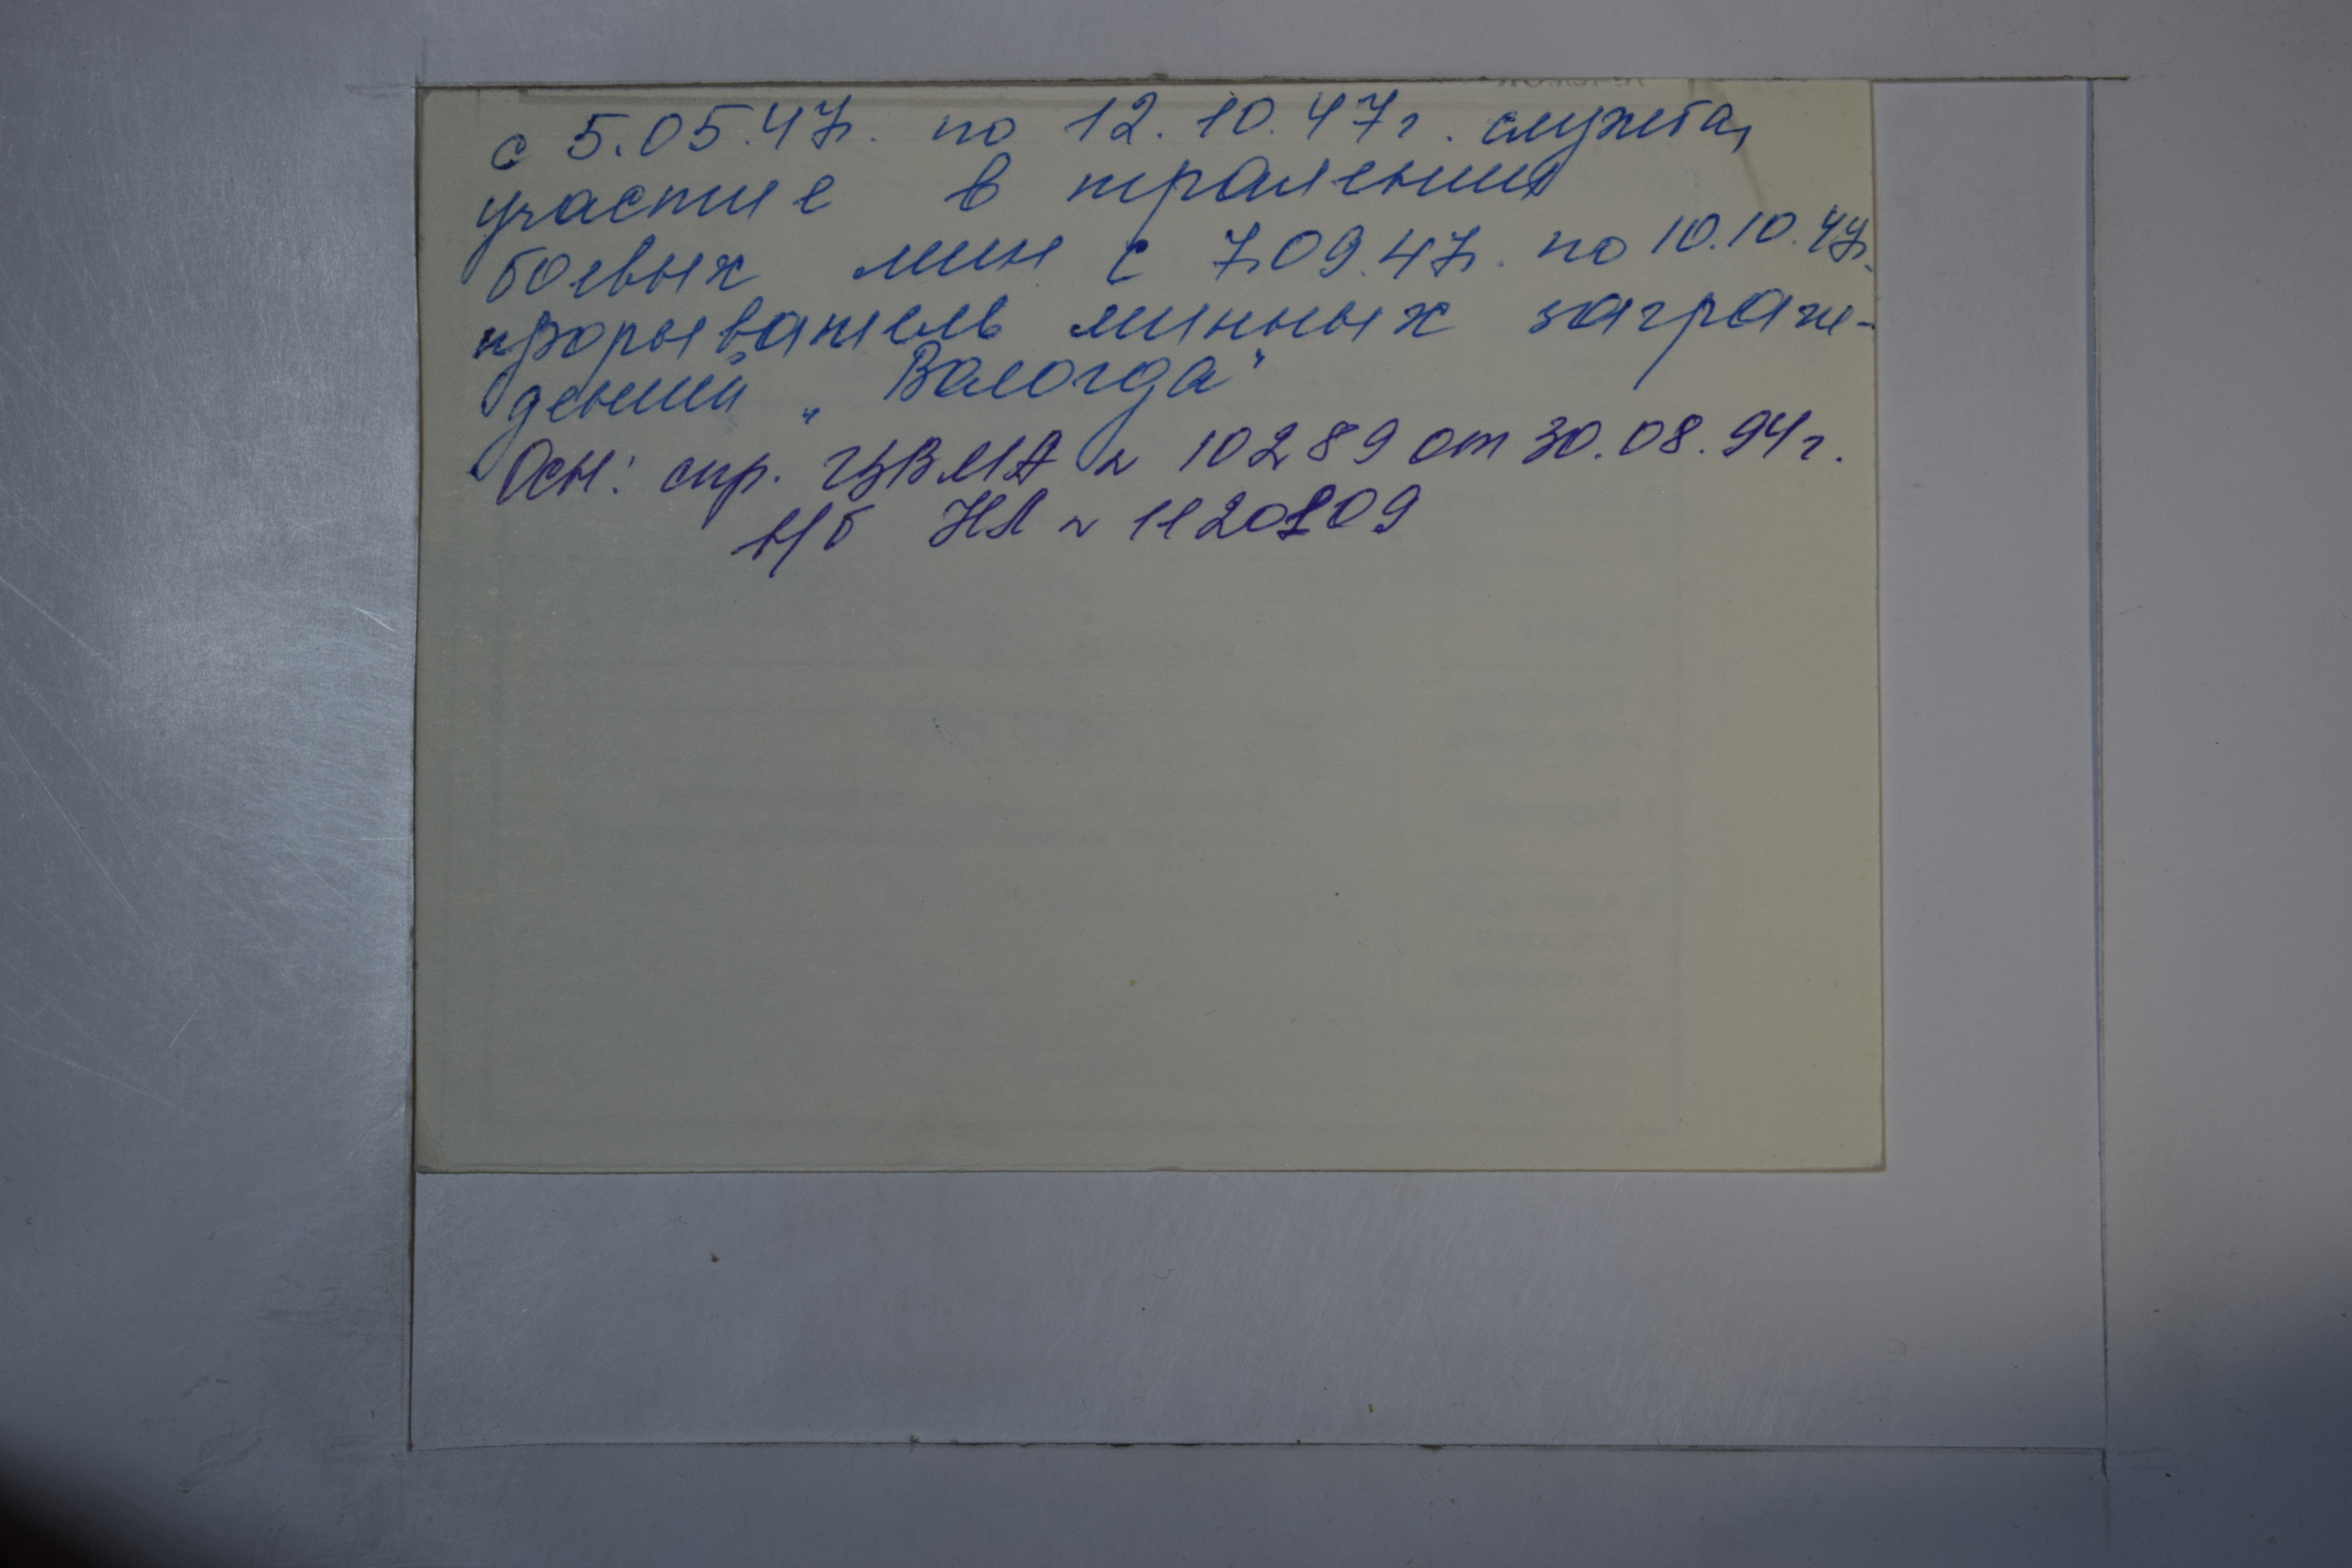 с 5.05.47г. по 12.10.47г. служба,
участие в тралении
боевых мин с 7.09.47г. по 10.10.47г.
прорыватель минных заграж-
дений „Вологда"
Осн: спр. ЦВМА № 10289 от 30.08.94г.
в/б НЛ №